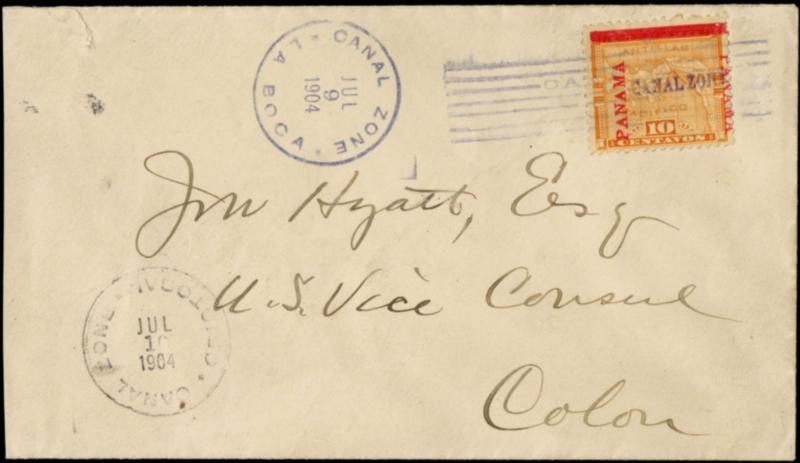 CANAL ZONE · LA BOCA ·
JUL
9
1904
ANTILLAS
PANAMA
CANAL ZONE
PANAMA
10
CENTAVOS
Jno Hyatt, Esq
U.S. Vice Consul
Colon
CRISTOBAL · CANAL ZONE ·
JUL
10
1904